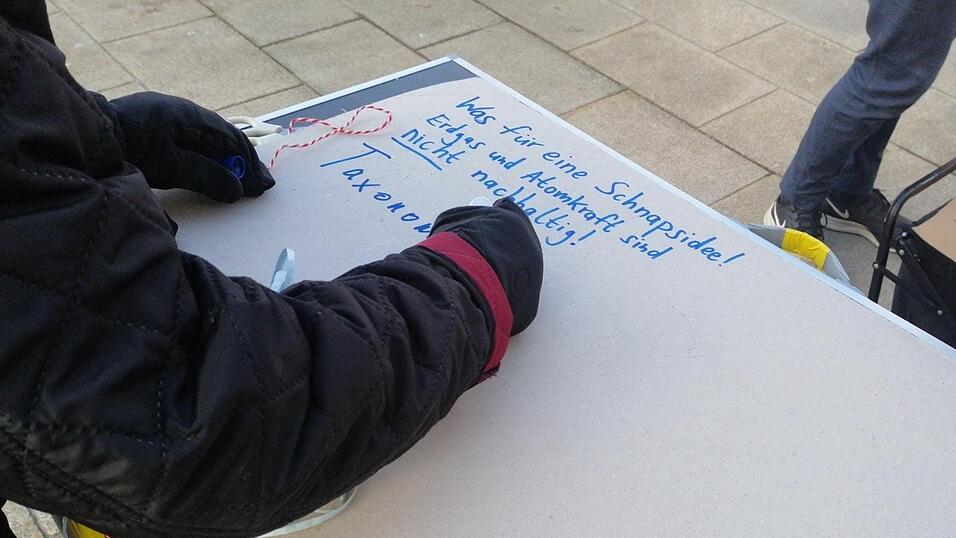 Was für eine Schnapsidee!
Erdgas und Atomkraft sind
nicht nachhaltig!